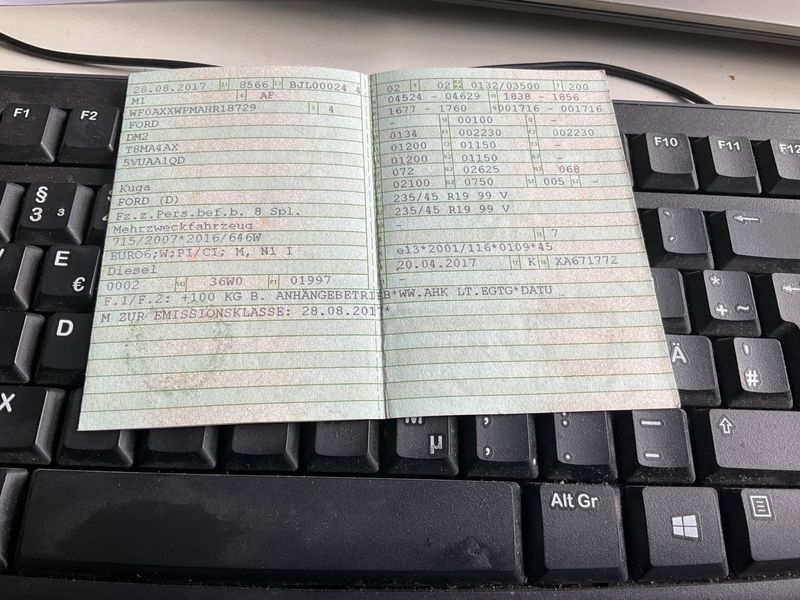 28.08.2017 8566 BJL00024 4
M1 AF
WF0AXXWPMAHR18729 4
FORD
DM2
T8MA4AX
5VUAA1QD
Kuga
FORD (D)
Fz.z.Pers.bef.b. 8 Spl.
Mehrzweckfahrzeug
715/2007*2016/646W
EURO6;W;PI/CI; M, N1 I
Diesel
0002 36W0 01997
F.1/F.2: +100 KG B. ANHÄNGEBETRIEB*WW.AHK LT.EGTG*DATU
M ZUR EMISSIONSKLASSE: 28.08.2017*
02 02 0132/03500 200
04524 - 04629 1838 - 1856
1677 - 1760 001716 - 001716
00100 -
0134 002230 002230
01200 01150 -
01200 01150 -
072 02625 068
02100 0750 005 -
235/45 R19 99 V
235/45 R19 99 V
-
7
e13*2001/116*0109*45
20.04.2017 K XA671772
-
F1
F2
F10
F11
F12
§
3 ³
E
€
D
X
M
µ
;
,
:
.
_
-
*
+ ~
Ä
'
#
Alt Gr